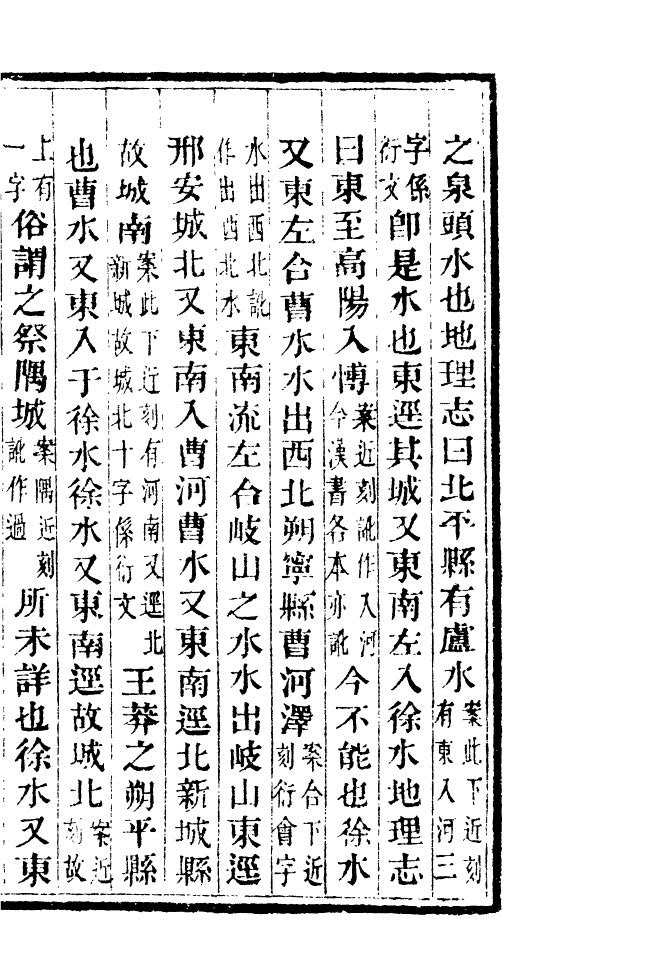 之泉頭水也地理志曰北平縣有盧水案此下近刻有東入河三
字係衍文卽是水也東逕其城又東南左入徐水地理志
曰東至高陽入博案近刻訛作入河今漢書各本亦訛今不能也徐水
又東左合曹水水出西北朔寧縣曹河澤案合下近刻衍會字
水出西北訛作出西北水東南流左合岐山之水水出岐山東逕
邢安城北又東南入曹河曹水又東南逕北新城縣
故城南案此下近刻有河南又逕北新城故城北十字係衍文王莽之朔平縣
也曹水又東入于徐水徐水又東南逕故城北案近刻故
上有一字俗謂之祭隅城案隅近刻訛作過所未詳也徐水又東